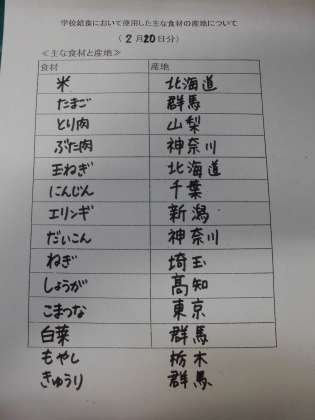 学校給食において使用した主な食材の産地について
(2月20日分)
≪主な食材と産地≫
食材 産地
米 北海道
たまご 群馬
とり肉 山梨
ぶた肉 神奈川
玉ねぎ 北海道
にんじん 千葉
エリンギ 新潟
だいこん 神奈川
ねぎ 埼玉
しょうが 高知
こまつな 東京
白菜 群馬
もやし 栃木
きゅうり 群馬